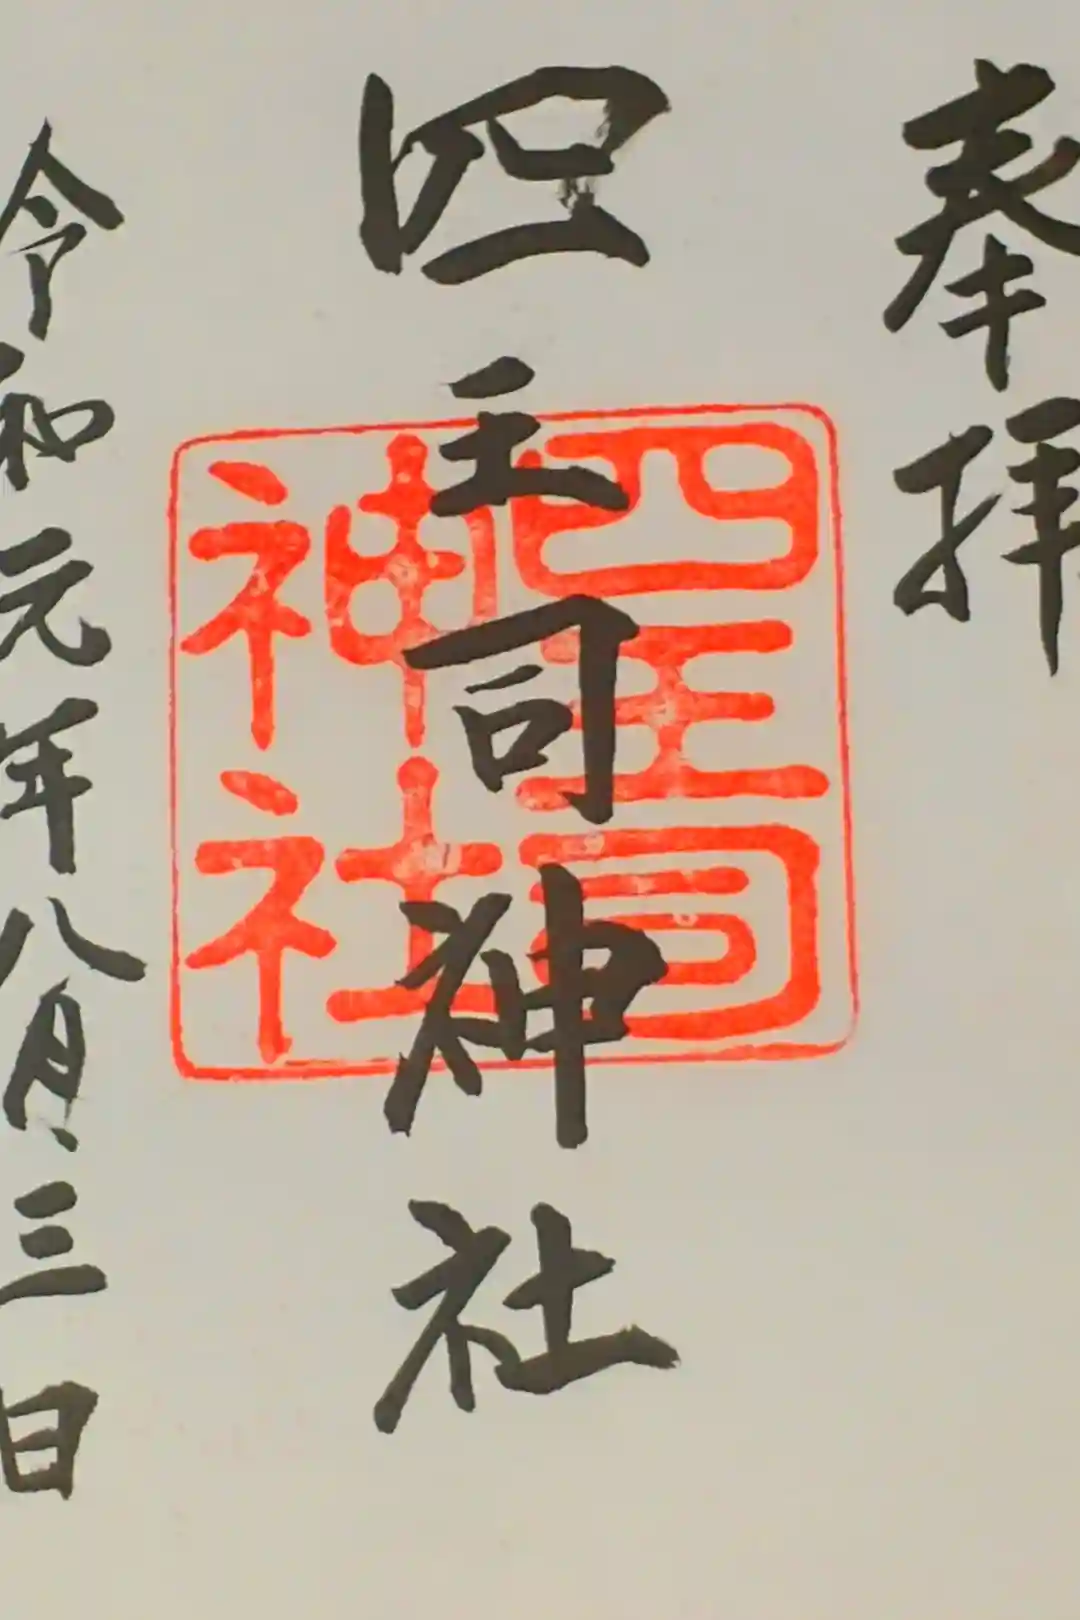 奉拝
四主司神社
四主司
神社
令和元年八月三日